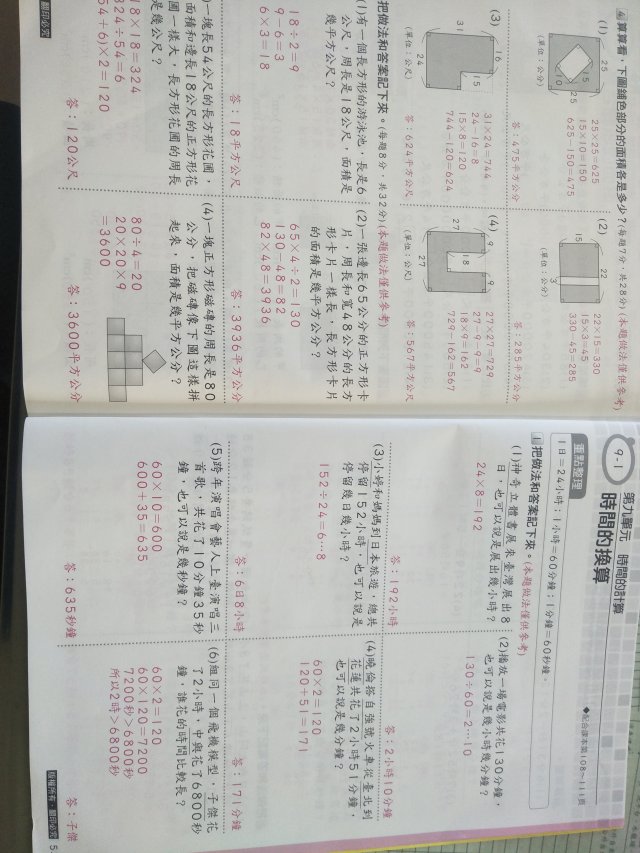 算算看，下圖鋪色部分的面積各是多少？(每題7分，共28分)(本題做法僅供參考)
(1)
25
15
10
25
(單位：公分)
25×25=625
15×10=150
625-150=475
答：475平方公分
(2)
22
15
3
(單位：公分)
22×15=330
15×3=45
330-45=285
答：285平方公分
(3)
16
31
15
24
(單位：公尺)
31×24=744
24-16=8
15×8=120
744-120=624
答：624平方公尺
(4)
9
9
27
18
27
(單位：公尺)
27×27=729
27-9-9=9
18×9=162
729-162=567
答：567平方公尺
把做法和答案記下來。(每題8分，共32分)(本題做法僅供參考)
(1)有一個長方形的游泳池，長是6
公尺，周長是18公尺，面積是
幾平方公尺？
18÷2=9
9-6=3
6×3=18
答：18平方公尺
(2)一張邊長65公分的正方形卡
片，周長和寬48公分的長方
形卡片一樣長，長方形卡片
的面積是幾平方公分？
65×4÷2=130
130-48=82
82×48=3936
答：3936平方公分
一塊長54公尺的長方形花圃，
面積和邊長18公尺的正方形花
圃一樣大，長方形花圃的周長
是幾公尺？
18×18=324
324÷54=6
54+6)×2=120
答：120公尺
(4)一塊正方形磁磚的周長是80
公分，把磁磚像下圖這樣拼
起來，面積是幾平方公分？
80÷4=20
20×20×9
=3600
答：3600平方公分
翻印必究
9-1
第九單元 時間的計算
時間的換算
◆配合課本第108～111頁
重點整理
1日=24小時；1小時=60分鐘；1分鐘=60秒鐘。
1 把做法和答案記下來。(本題做法僅供參考)
(1)神奇立體書展來臺灣展出8
日，也可以說是展出幾小時？
24×8=192
答：192小時
(2)播放一場電影共花130分鐘，
也可以說是幾小時幾分鐘？
130÷60=2…10
答：2小時10分鐘
(3)小婷和媽媽到日本旅遊，總共
停留152小時，也可以說是
停留幾日幾小時？
152÷24=6…8
答：6日8小時
(4)曉倫搭自強號火車從臺北到
花蓮共花了2小時51分鐘，
也可以說是幾分鐘？
60×2=120
120+51=171
答：171分鐘
(5)跨年演唱會藝人上臺演唱三
首歌，共花了10分鐘35秒
鐘，也可以說是幾秒鐘？
60×10=600
600+35=635
答：635秒鐘
(6)組同一個飛機模型，子傑花
了2小時，中興花了6800秒
鐘，誰花的時間比較長？
60×2=120
60×120=7200
7200秒>6800秒
所以2時>6800秒
答：子傑
版權所有．翻印必究
5